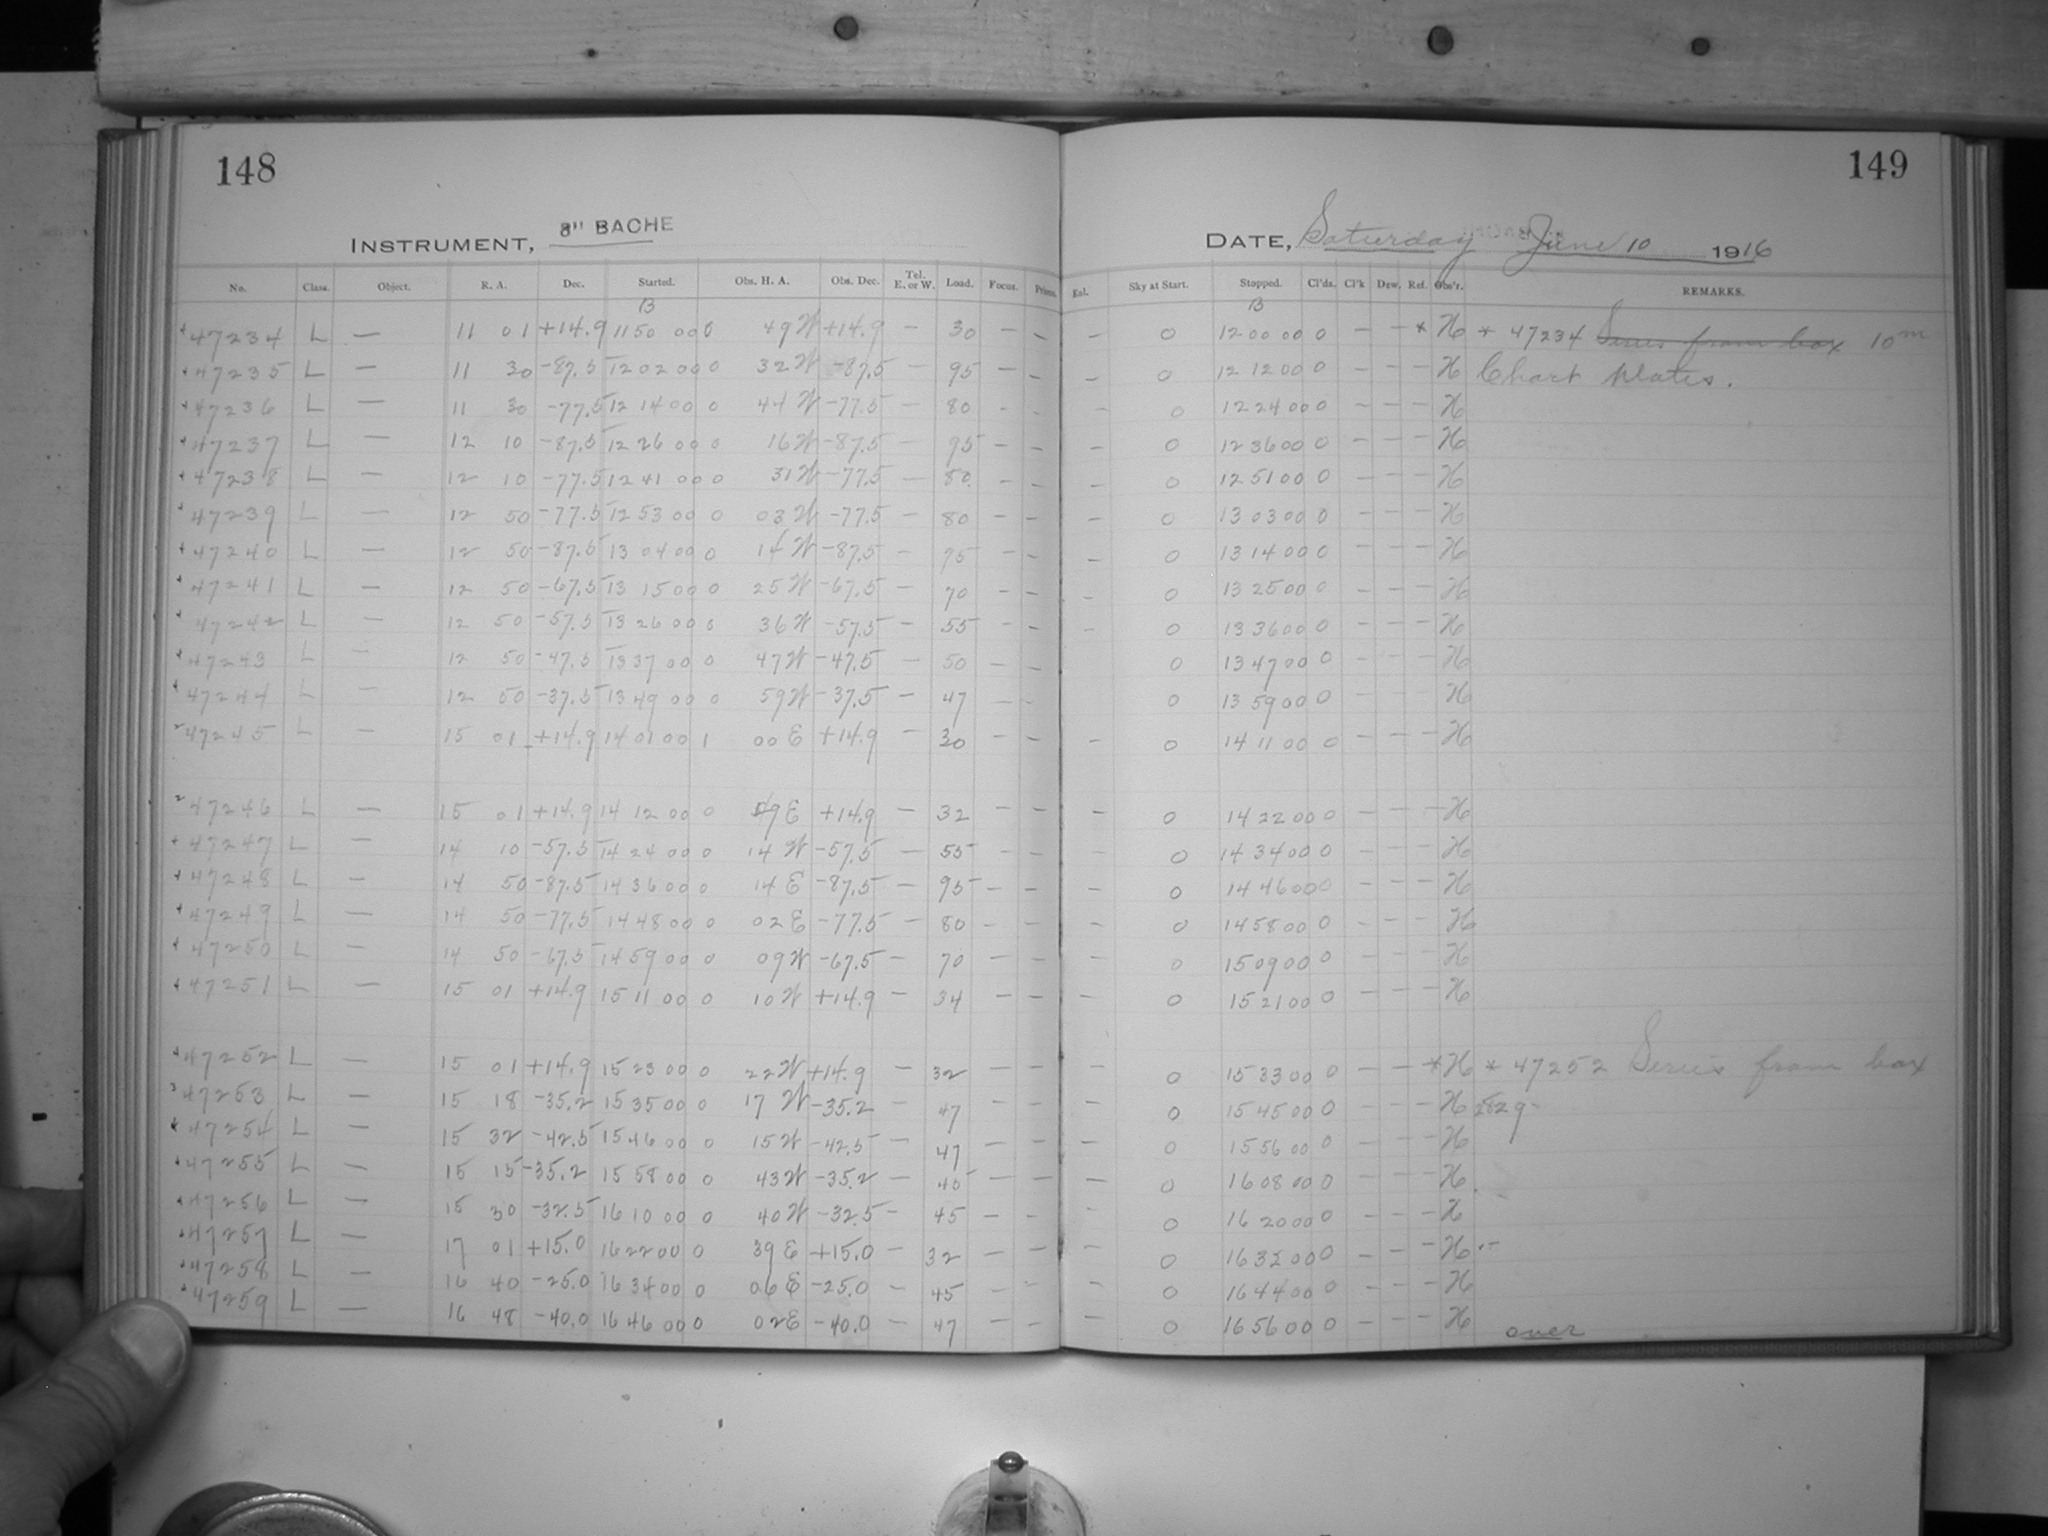 148
149
INSTRUMENT, 8" BACHE
DATE, Saturday June 10 1916
No. Class. Object. R. A. Dec. Started. Obs. H. A. Obs. Dec. Tel. E. or W. Load. Focus. Prism. Eal. Sky at Start. Stopped. Cl'ds. Cl'k Dew. Ref. Obs'r. REMARKS.
B B
47234 L — 11 01 +14.9 11 50 00 0 49 W +14.9 — 30 — — 0 12 00 00 0 — — * H * 47234 Series from box 10m
47235 L — 11 30 -87.5 12 02 00 0 32 W -87.5 — 95 — — — 0 12 12 00 0 — — — H Chart plates.
47236 L — 11 30 -77.5 12 14 00 0 44 W -77.5 — 80 - — — 0 12 24 00 0 — — — H
47237 L — 12 10 -87.5 12 26 00 0 16 W -87.5 — 95 - — — 0 12 36 00 0 — — — H
47238 L — 12 10 -77.5 12 41 00 0 31 W -77.5 — 80 - — — 0 12 51 00 0 — — — H
47239 L — 12 50 -77.5 12 53 00 0 03 W -77.5 — 80 — — — 0 13 03 00 0 — — — H
47240 L — 12 50 -87.5 13 04 00 0 14 W -87.5 — 95 — — — 0 13 14 00 0 — — — H
47241 L — 12 50 -67.5 13 15 00 0 25 W -67.5 — 70 — — — 0 13 25 00 0 — — — H
47242 L — 12 50 -57.5 13 26 00 0 36 W -57.5 — 55 — — — 0 13 36 00 0 — — — H
47243 L — 12 50 -47.5 13 37 00 0 47 W -47.5 — 50 — — 0 13 47 00 0 — — — H
47244 L — 12 50 -37.5 13 49 00 0 59 W -37.5 — 47 — — 0 13 59 00 0 — — — H
47245 L — 15 01 +14.9 14 01 00 1 00 E +14.9 — 30 — — — 0 14 11 00 0 — — — H
47246 L — 15 01 +14.9 14 12 00 0 49 E +14.9 — 32 — — — 0 14 22 00 0 — — — H
47247 L — 14 10 -57.5 14 24 00 0 14 W -57.5 — 55 — — — 0 14 34 00 0 — — — H
47248 L — 14 50 -87.5 14 36 00 0 14 E -87.5 — 95 — — — 0 14 46 00 0 — — — H
47249 L — 14 50 -77.5 14 48 00 0 02 E -77.5 — 80 — — — 0 14 58 00 0 — — — H
47250 L — 14 50 -67.5 14 59 00 0 09 W -67.5 — 70 — — — 0 15 09 00 0 — — — H
47251 L — 15 01 +14.9 15 11 00 0 10 W +14.9 — 34 — — — 0 15 21 00 0 — — — H
47252 L — 15 01 +14.9 15 23 00 0 22 W +14.9 — 32 — — — 0 15 33 00 0 — — * H * 47252 Series from box
47253 L — 15 18 -35.2 15 35 00 0 17 W -35.2 — 47 — — — 0 15 45 00 0 — — — H 2829-
47254 L — 15 32 -42.5 15 46 00 0 15 W -42.5 — 47 — — — 0 15 56 00 0 — — — H
47255 L — 15 15 -35.2 15 58 00 0 43 W -35.2 — 45 — — — 0 16 08 00 0 — — — H
47256 L — 15 30 -32.5 16 10 00 0 40 W -32.5 — 45 — — — 0 16 20 00 0 — — — H
47257 L — 17 01 +15.0 16 22 00 0 39 E +15.0 — 32 — — — 0 16 32 00 0 — — — H
47258 L — 16 40 -25.0 16 34 00 0 06 E -25.0 — 45 — — — 0 16 44 00 0 — — — H
47259 L — 16 48 -40.0 16 46 00 0 02 E -40.0 — 47 — — — 0 16 56 00 0 — — — H
over